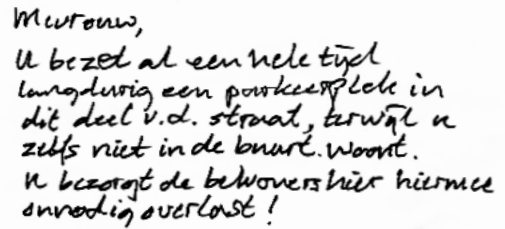 Mevrouw,
U bezet al een hele tijd
langdurig een parkeerplek in
dit deel v.d. straat, terwijl u
zelfs niet in de buurt woont.
U bezorgt de bewoners hier hiermee
onnodig overlast!